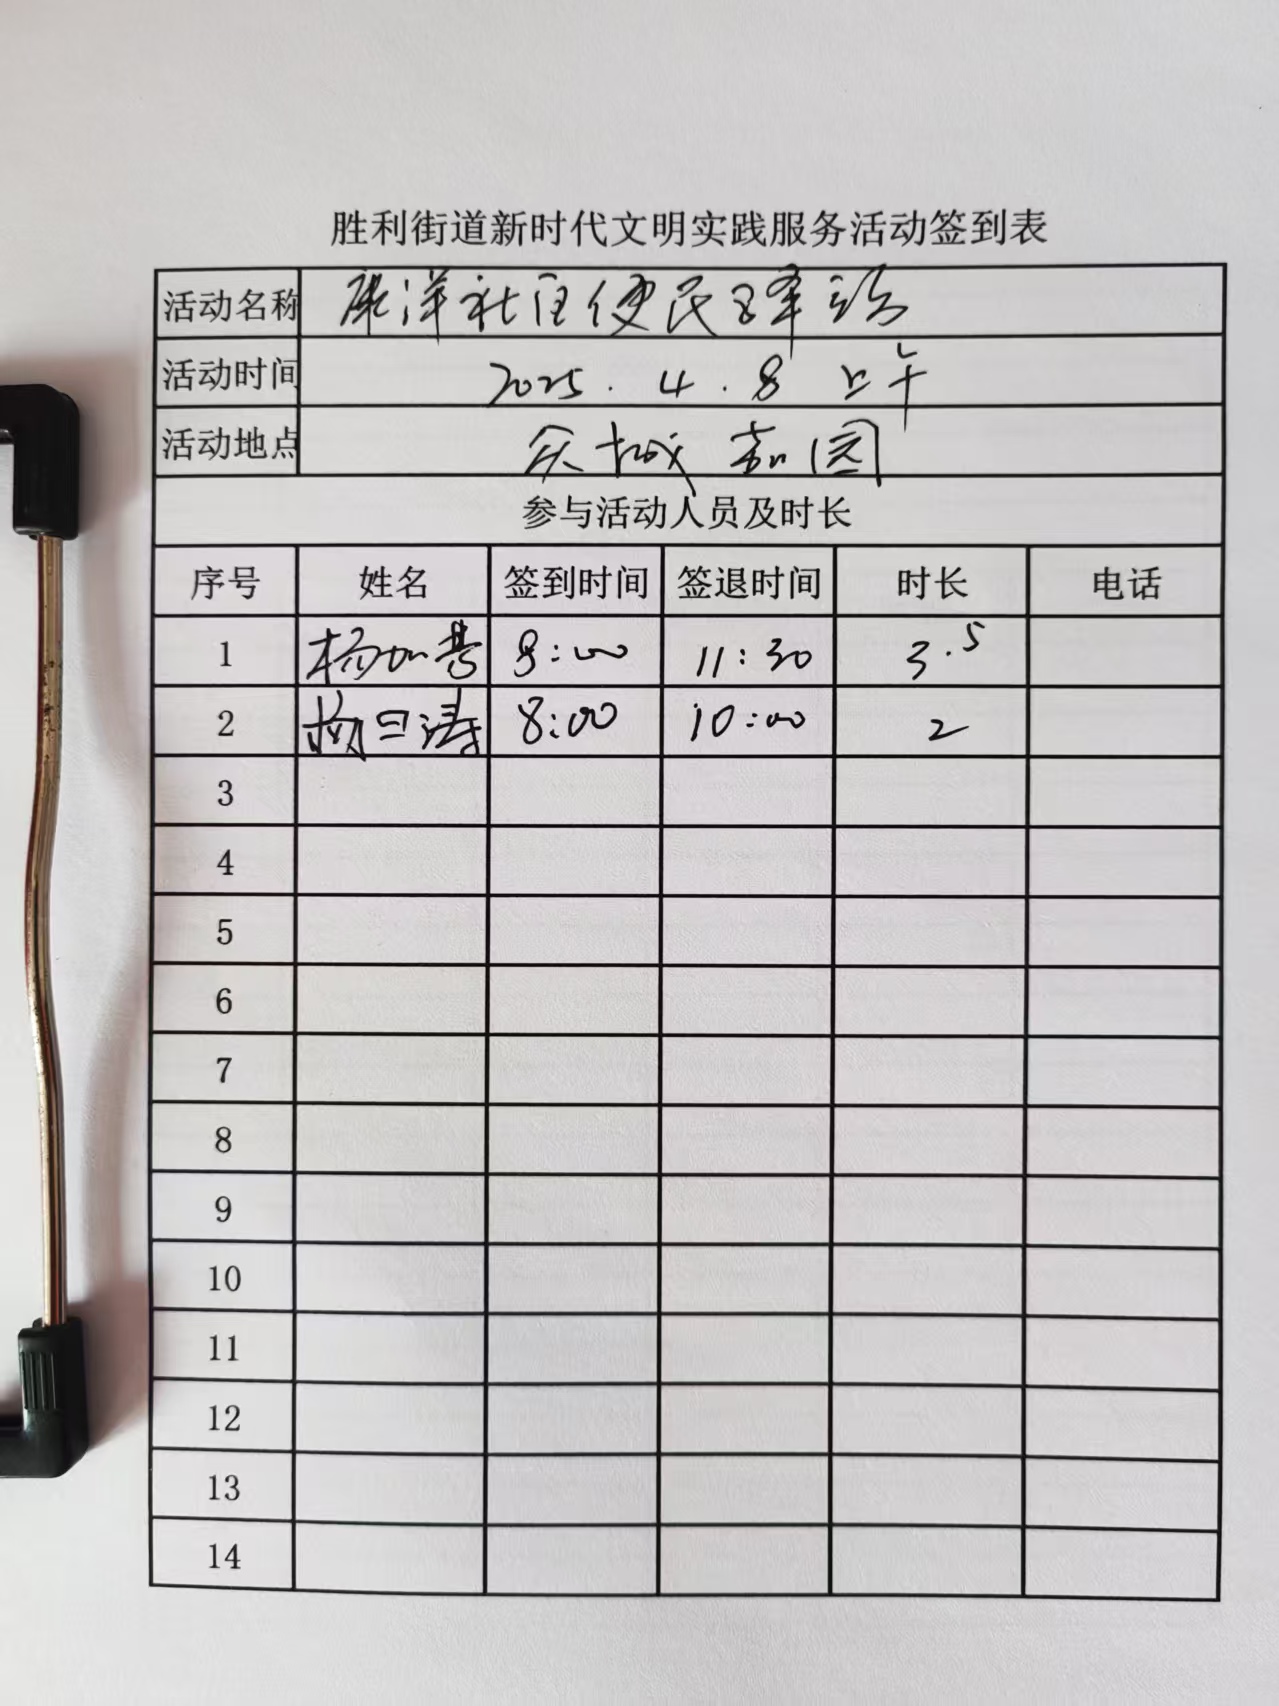 胜利街道新时代文明实践服务活动签到表
活动名称 康洋社区便民理发
活动时间 2025.4.8 上午
活动地点 众城嘉园
参与活动人员及时长
序号 姓名 签到时间 签退时间 时长 电话
1 杨 8:00 11:30 3.5
2 涛 8:00 10:00 2
3
4
5
6
7
8
9
10
11
12
13
14